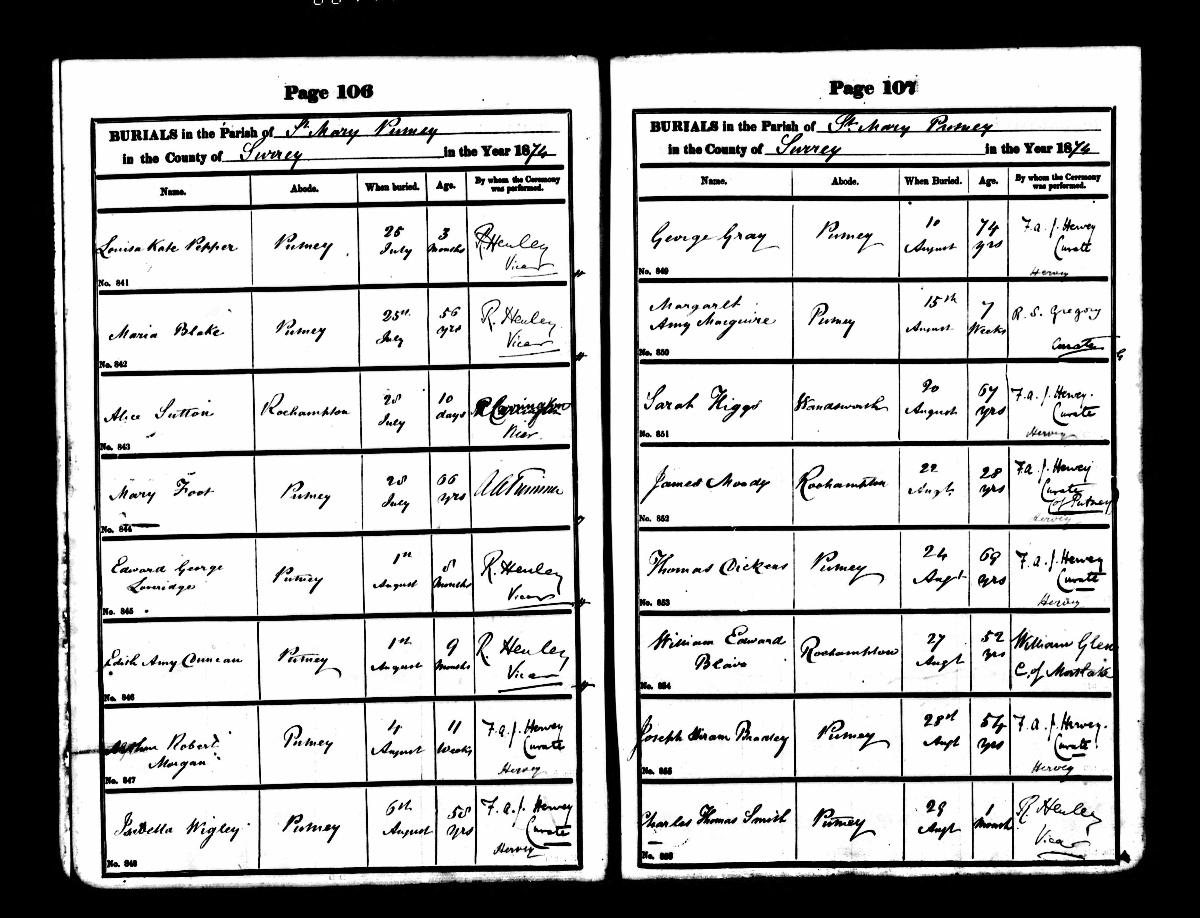 Page 106
BURIALS in the Parish of St. Mary Putney
in the County of Surrey in the Year 1874
Name. Abode. When buried. Age. By whom the Ceremony was performed.
Louisa Kate Pepper Putney 25 July 3 Months R Henley Vicar
No. 841
Maria Blake Putney 25th July 56 yrs R. Henley Vicar
No. 842
Alice Sutton Roehampton 28 July 10 days
No. 843
Mary Foot Putney 28 July 66 yrs
No. 844
Edward George Loveridge Putney 1st August 8 Months R. Henley Vicar
No. 845
Edith Amy Duncan Putney 1st August 9 Months R Henley Vicar
No. 846
Arthur Robert Morgan Putney 4 August 11 Weeks F. A. J. Hervey Curate
Hervey
No. 847
Isabella Wigley Putney 6th August 58 yrs F. A. J. Hervey Curate
Hervey
No. 848
Page 107
BURIALS in the Parish of St. Mary Putney
in the County of Surrey in the Year 1874
Name. Abode. When Buried. Age. By whom the Ceremony was performed.
George Gray Putney 10 August 74 yrs F. A. J. Hervey Curate
Hervey
No. 849
Margaret Amy Macguire Putney 15th August 7 Weeks R. S. Gregory Curate
No. 850
Sarah Higgs Wandsworth 20 August 67 yrs F. A. J. Hervey. Curate
Hervey
No. 851
James Moody Roehampton 22 Augt 28 yrs F. A. J. Hervey Curate of Putney
Hervey
No. 852
Thomas Dickens Putney 24 Augt 69 yrs F. A. J. Hervey Curate
Hervey
No. 853
William Edward Roehampton 27 Augt 52 yrs William Glen C. of Mortlake
No. 854
Joseph Hiram Bradley Putney 28th Augt 54 yrs F. A. J. Hervey. Curate
Hervey
No. 855
Charles Thomas Smith Putney 29 Augt 1 Month R Henley Vicar
No. 856